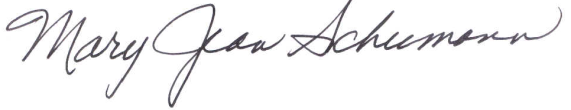 Mary Jean Schumann